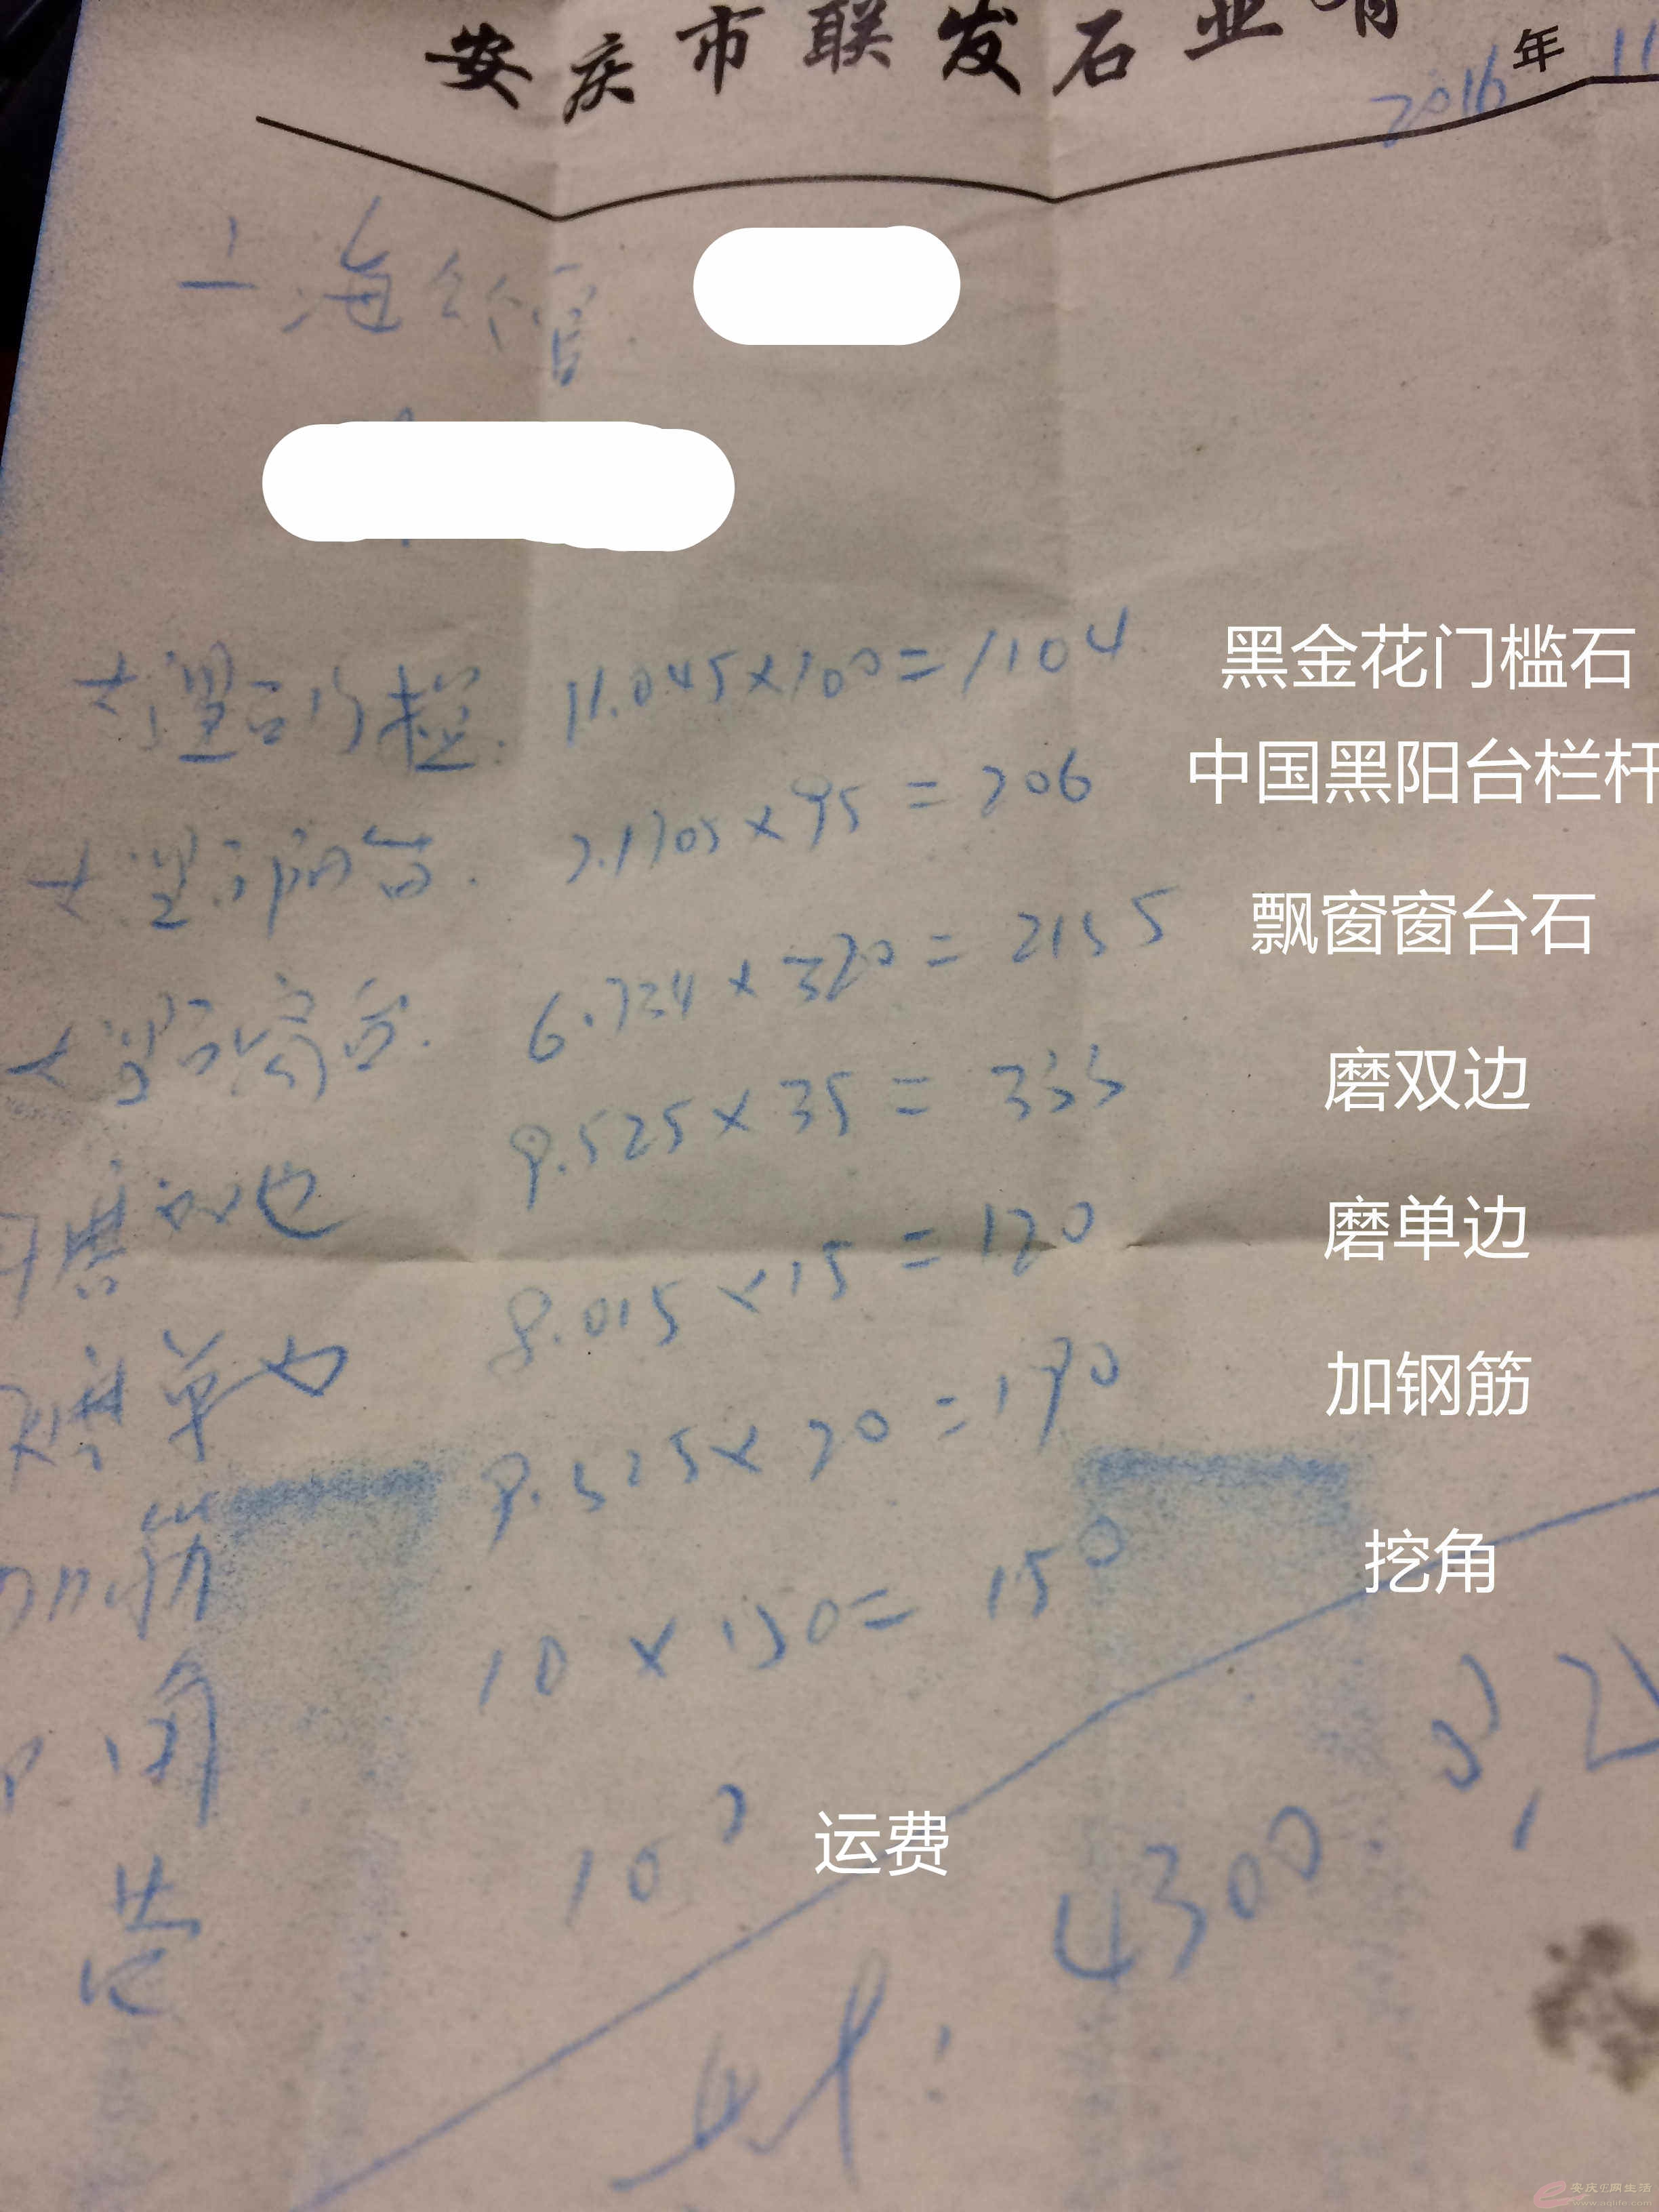 安庆市联发石业有
2016年 11
上海公馆
大理石门槛. 11.045×100=1104
黑金花门槛石
中国黑阳台栏杆
大理石阳台. 2.1705×95=206
飘窗窗台石
大理石窗台. 6.734×320=2155
磨双边
磨双边 9.525×35=333
磨单边
磨单边 8.015×15=120
加钢筋
筋 9.525×20=190
挖角
角 10×150=150
100 运费
4300.
安庆E网生活
www.aqlife.com